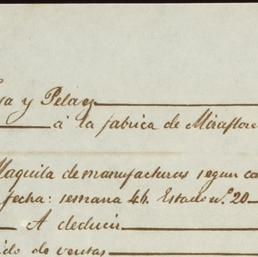 sa y Pelaez
á la fabrica de Miraflore
Maquila de manufacturas segun co
fecha: semana 44. Estado nº 20
A deducir
ido de ventas